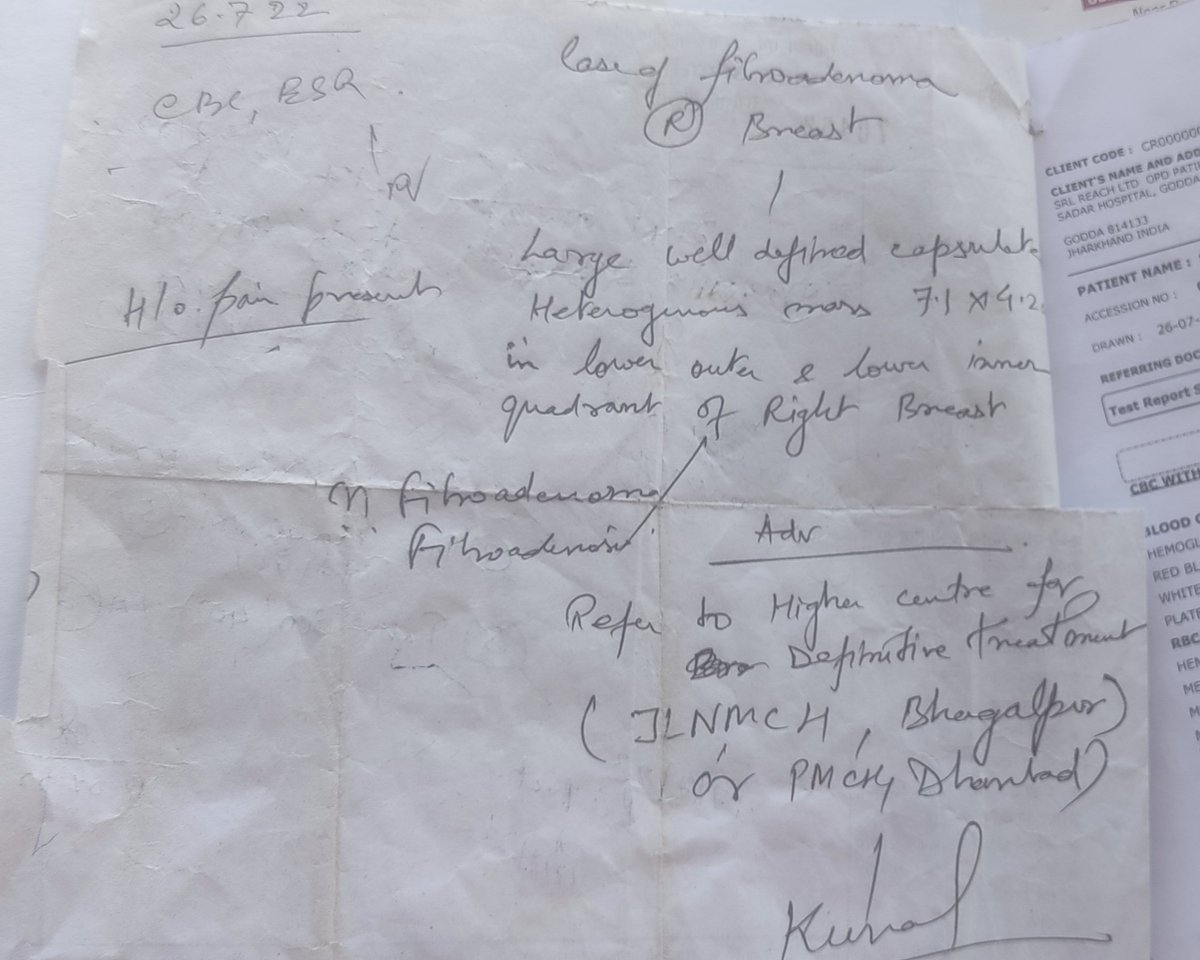 26.7.22
CBC, ESR.
N
H/o. pain present
Case of fibroadenoma
(R) Breast
Large well defined capsulate
Heterogenous mass 7.1 x 4.2
in lower outer & lower inner
quadrant of Right Breast
fibroadenoma
Fibroadenosis
Adv
Refer to Higher centre for
Definitive treatment
(JLNMCH, Bhagalpur)
or PMCH, Dhanbad)
Kunal
CLIENT CODE : CR00000
CLIENT'S NAME AND ADD
SRL REACH LTD OPD PATI
SADAR HOSPITAL, GODDA
GODDA 814133
JHARKHAND INDIA
PATIENT NAME :
ACCESSION NO :
DRAWN : 26-07-
REFERRING DOC
Test Report S
CBC WITH
BLOOD C
HEMOGL
RED BL
WHITE
PLATE
RBC
HEM
ME
M